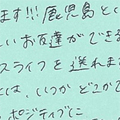 ます!!! 鹿児島とい
しいお友達ができる
スライフを送れまし
には、いつかどこかで
ポジティブに